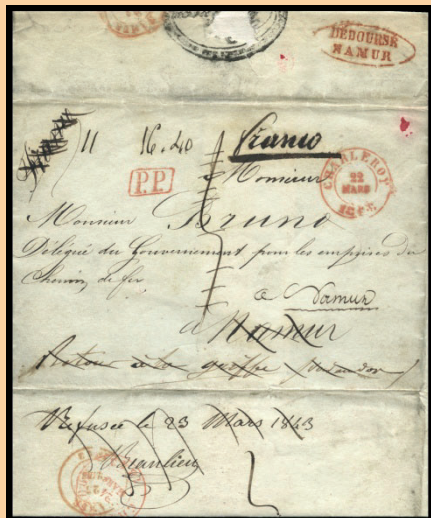 DÉBOURSÉ
NAMUR
11 16.40 Franco
P.P.
CHARLEROY
22
MARS
Monsieur
Monsieur Bruno
Délégué du Gouvernement pour les emprises du
Chemin de fer
a Namur
a Namur
Retour à la griffe
Refusée le 23 Mars 1843
Beaulieu